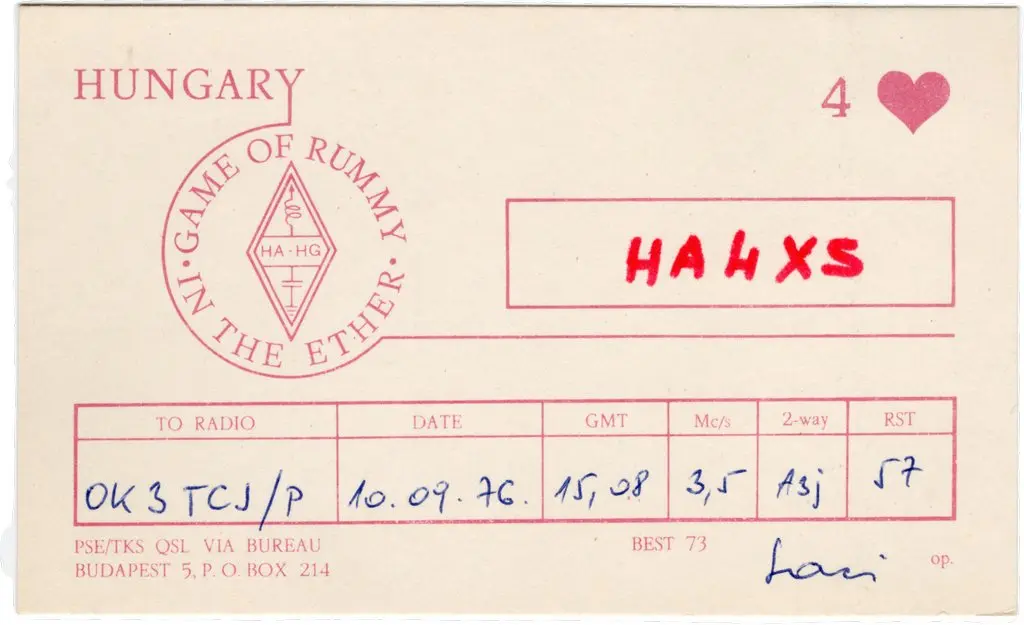 HUNGARY
4 ♥
GAME OF RUMMY
· IN THE ETHER ·
HA · HG
HA4XS
TO RADIO DATE GMT Mc/s 2-way RST
OK3TCJ/P 10.09.76. 15,08 3,5 A3j 57
PSE/TKS QSL VIA BUREAU BEST 73
BUDAPEST 5, P. O. BOX 214 Laci op.